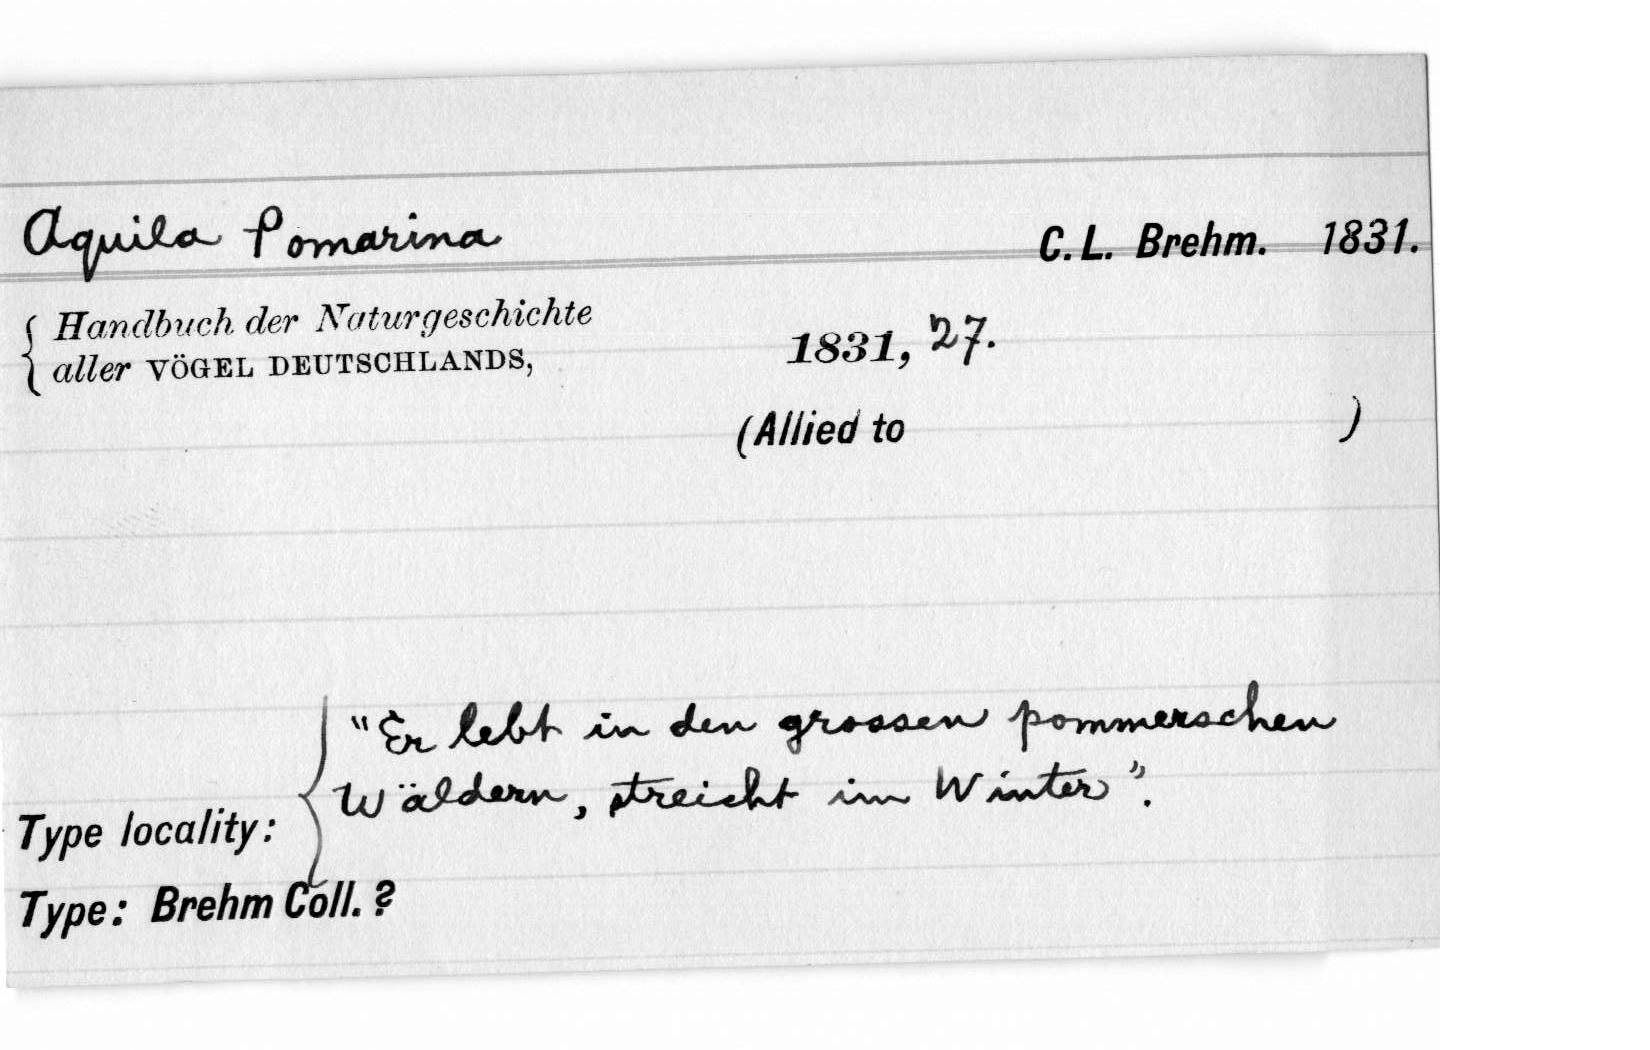 Aquila Pomarina C. L. Brehm. 1831.
Handbuch der Naturgeschichte
aller VÖGEL DEUTSCHLANDS, 1831, 27.
(Allied to )
"Er lebt in den grossen pommerschen
Wäldern, streicht im Winter".
Type locality:
Type: Brehm Coll. ?